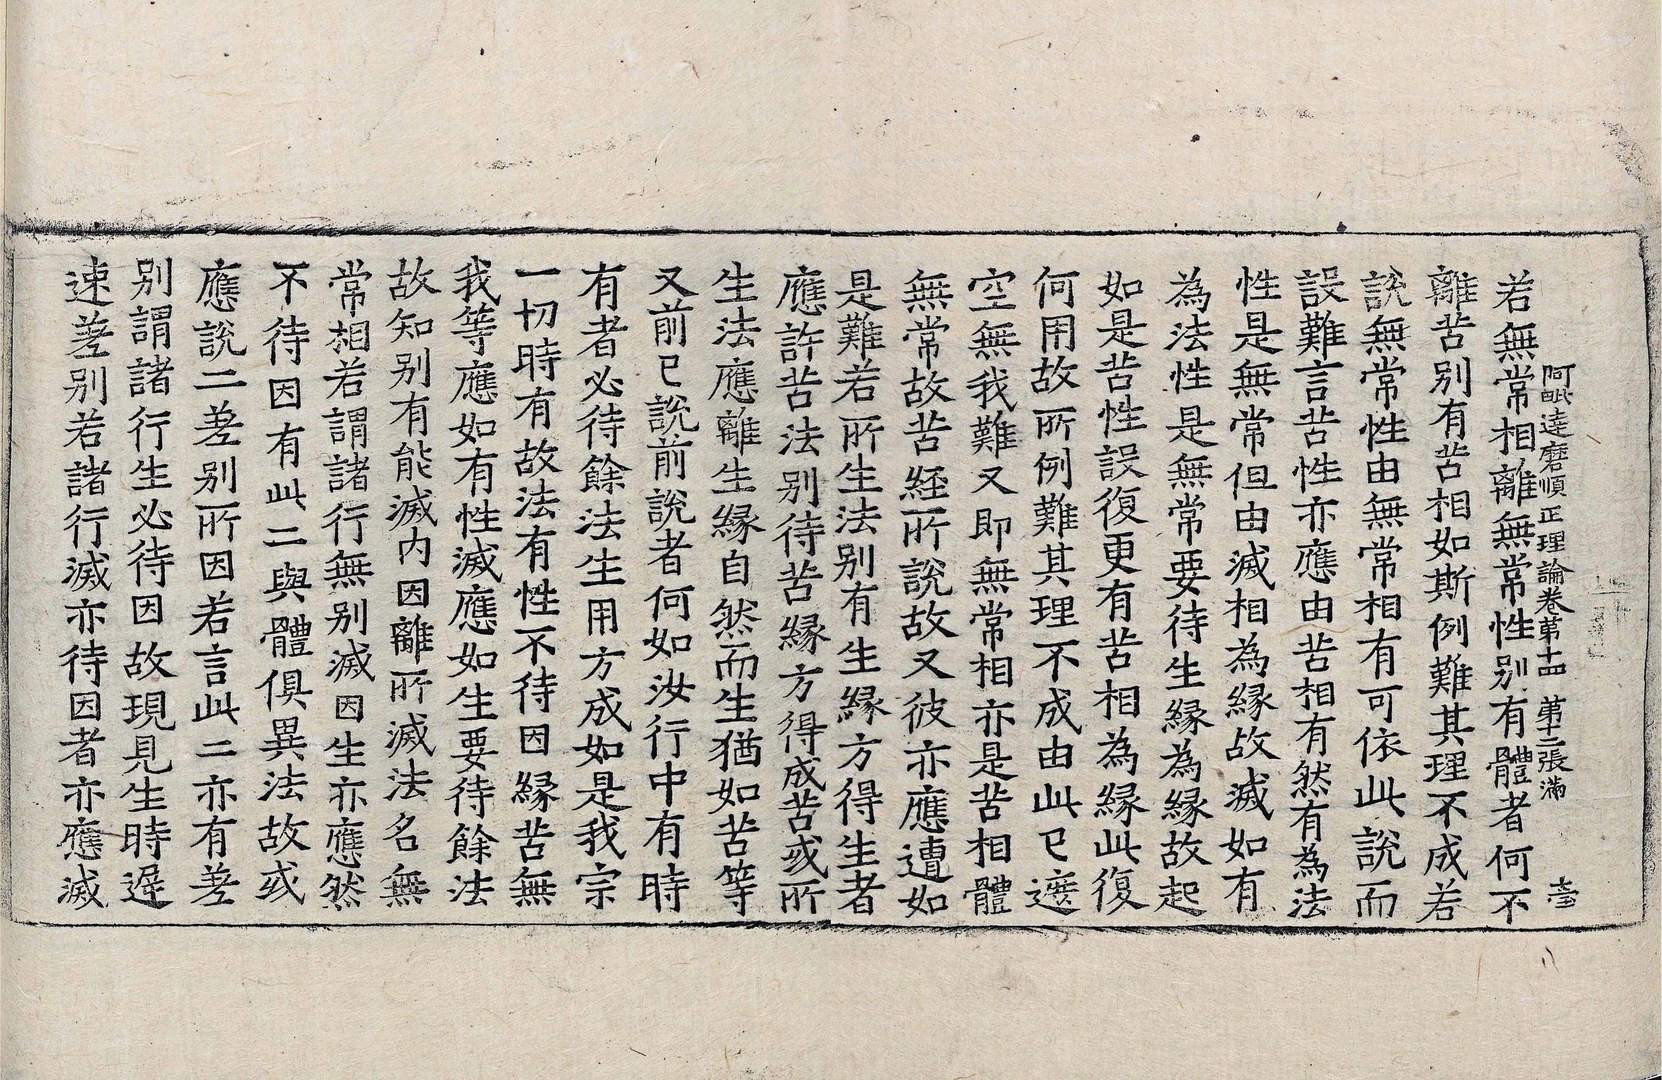 阿毗達磨順正理論卷第十四 第十二張 滿
若無常相離無常性別有體者何不
離苦別有苦相如斯例難其理不成若
說無常性由無常相有可依此說而
設難言苦性亦應由苦相有然有為法
性是無常但由滅相為緣故滅如有
為法性是無常要待生緣為緣故起
如是苦性設復更有苦相為緣此復
何用故所例難其理不成由此已遮
空無我難又即無常相亦是苦相體
無常故苦經所說故又彼亦應遭如
是難若所生法別有生緣方得生者
應許苦法別待苦緣方得成苦或所
生法應離生緣自然而生猶如苦等
又前已說前說者何如汝行中有時
有者必待餘法生用方成如是我宗
一切時有故法有性不待因緣苦無
我等應如有性滅應如生要待餘法
故知別有能滅內因離所滅法名無
常相若謂諸行無別滅因生亦應然
不待因有此二與體俱異法故或
應說二差別所因若言此二亦有差
別謂諸行生必待因故現見生時遲
速差別若諸行滅亦待因者亦應滅